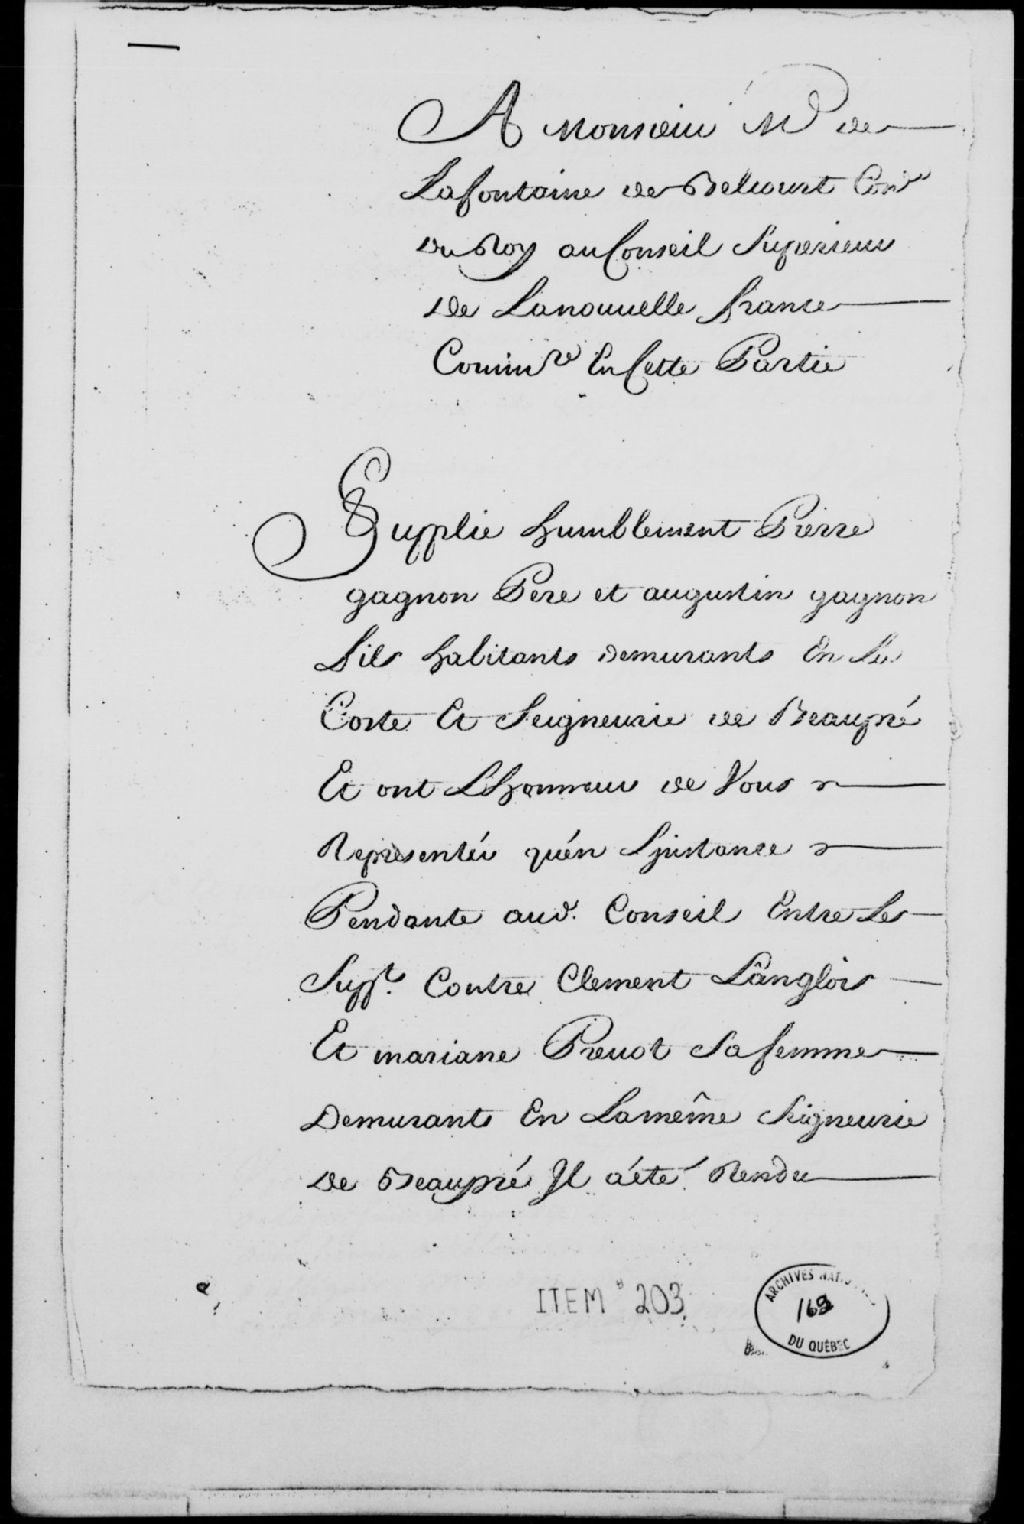 A Monsieur Mr de
Lafontaine de Belcourt Conser
Du Roy au Conseil Superieur
De Lanouuelle france
Commre En Cette Partie
Supplie humblement Pierre
gagnon Pere et augustin gagnon
fils habitants demurants En La
Coste Et Seigneurie de Beaupré
Et ont Lhonneur de Vous
Representér qu'én Linstance
Pendante aud. Conseil Entre Les
Supts. Contre Clement Lânglois
Et mariane Preuot Sa femme
Demurants En Lamême Seigneurie
de Beaupré Il a'été Rendu
ITEM 203
ARCHIVES
169
DU QUÉBEC